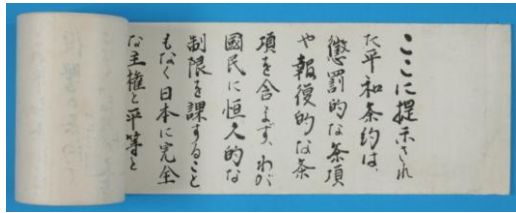 ここに提示され
た平和条約は、
懲罰的な条項
や報復的な条
項を含まず、わが
國民に恒久的な
制限を課すること
もなく、日本に完全
な主権と平等と